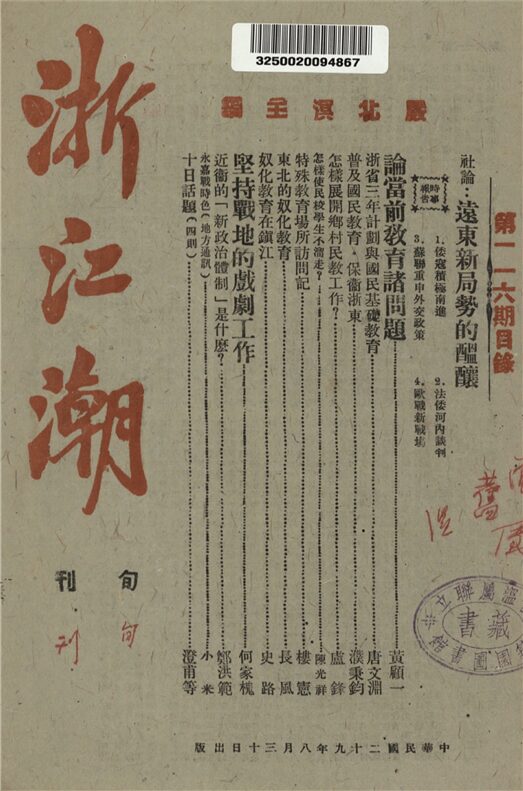 3250020094867
嚴北溟主編
浙江潮
旬刊
旬刊
第一一六期目錄
社論：遠東新局勢的醞釀
時事報告
1.倭寇積極南進
2.法倭河內談判
3.蘇聯重申外交政策
4.歐戰新戰場
論當前教育諸問題……黃顧一
浙省三年計劃與國民基礎教育……唐文淵
普及國民教育，保衞浙東……濮秉鈞
怎樣展開鄉村民教工作？……盧鋒
怎樣使民校學生不溜走？……陳光祥
特殊教育場所訪問記……樓憲
東北的奴化教育……長風
奴化教育在鎮江……史路
堅持戰地的戲劇工作……何家槐
近衞的「新政治體制」是什麽？……鄭洪範
永嘉戰時色（地方通訊）……小米
十日話題（四則）……澄甫等
中華民國二十九年八月三十日出版
溫屬聯立
圖書
藏書
舊